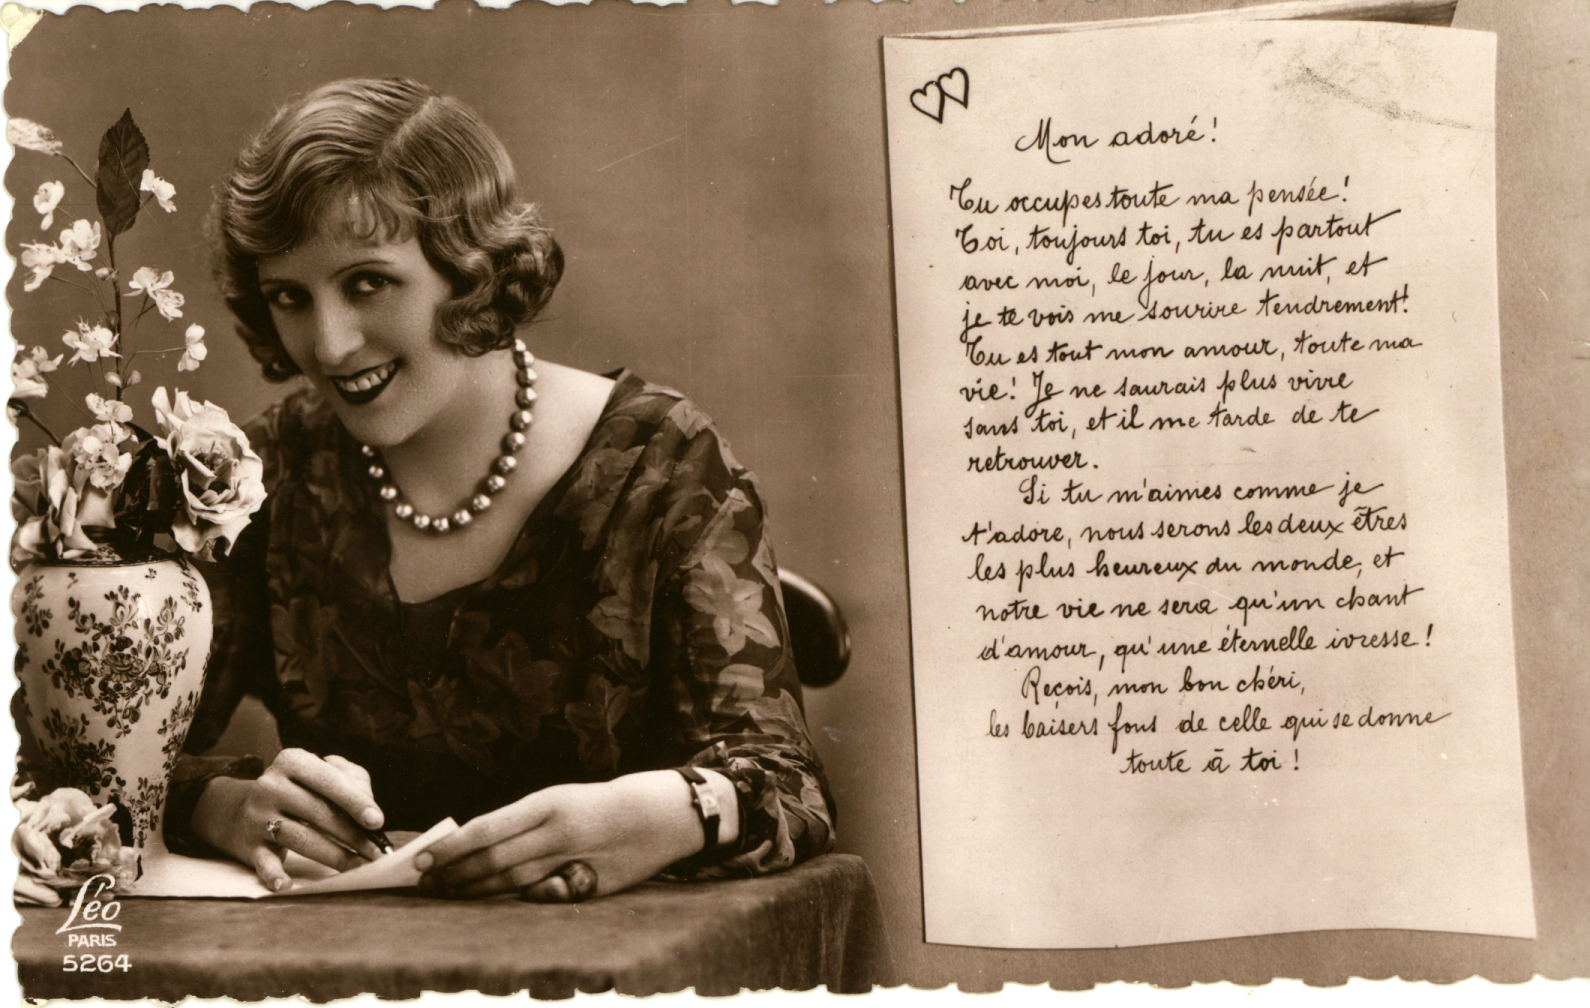 Mon adoré !
Tu occupes toute ma pensée !
Toi, toujours toi, tu es partout
avec moi, le jour, la nuit, et
je te vois me sourire tendrement !
Tu es tout mon amour, toute ma
vie ! Je ne saurais plus vivre
sans toi, et il me tarde de te
retrouver.
Si tu m'aimes comme je
t'adore, nous serons les deux êtres
les plus heureux du monde, et
notre vie ne sera qu'un chant
d'amour, qu'une éternelle ivresse !
Reçois, mon bon chéri,
les baisers fous de celle qui se donne
toute à toi !
Léo
PARIS
5264